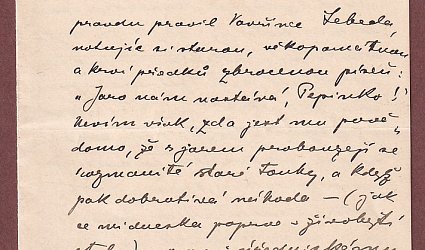 pravdu pravil Vavřinec Lebeda
notujíc si starou, věkopamátnou
a krví předků zbrocenou píseň:
"Jaro nám nastává, Pepinko!"
Nevím však, zda jest mu pově-
domo, že s jarem probouzejí se
rozmanité staré touhy, a když
pak dobrotivá náhoda — (jak
se mi dneska poprvé v živobytí